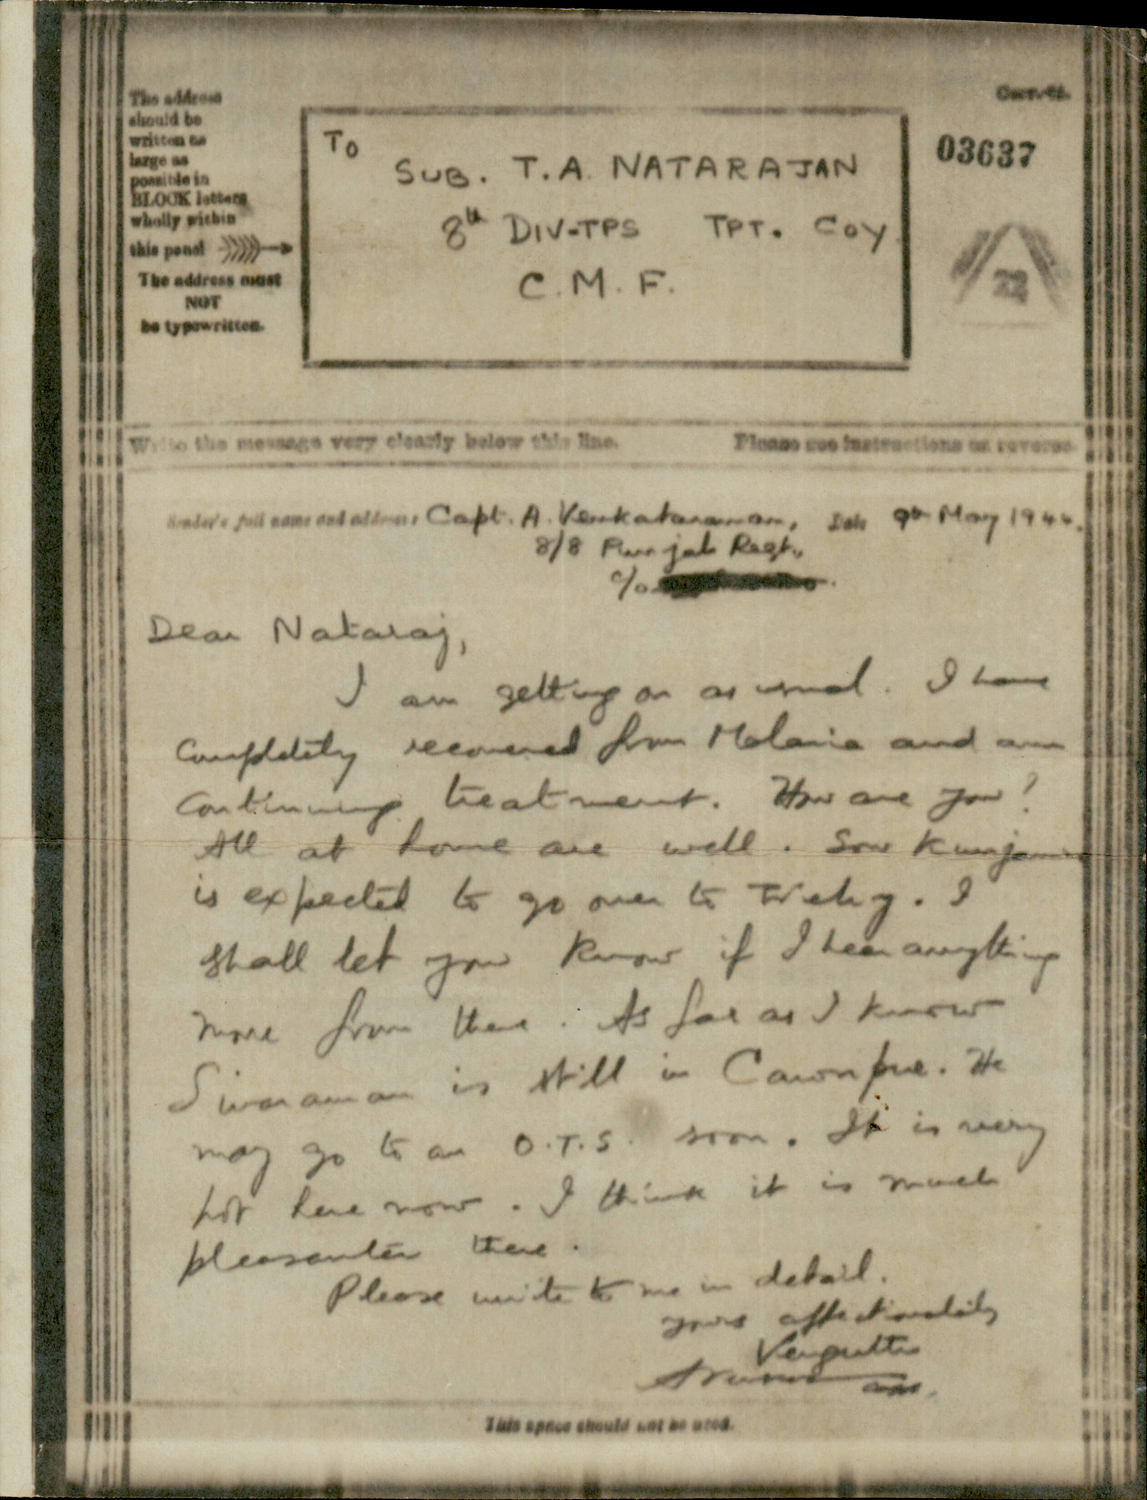 The address
should be
written as
large as
possible in
BLOCK letters
wholly within
this panel
The address must
NOT
be typewritten.
To
SUB. T.A. NATARAJAN
8th DIV-TPS TPT. COY
C.M.F.
03637
22
Write the message very clearly below this line. Please see instructions on reverse.
Sender's full name and address Capt. A. Venkataraman, Date 9th May 1944.
8/8 Punjab Regt.,
c/o
Dear Nataraj,
I am getting on as usual. I have
completely recovered from Malaria and am
continuing treatment. How are you?
All at home are well. Sow Kunjamma
is expected to go over to Trichy. I
shall let you know if I hear anything
more from there. As far as I know
Sivaraman is still in Cawnpore. He
may go to an O.T.S. soon. It is very
hot here now. I think it is much
pleasanter there.
Please write to me in detail.
yours affectionately
This space should not be used.